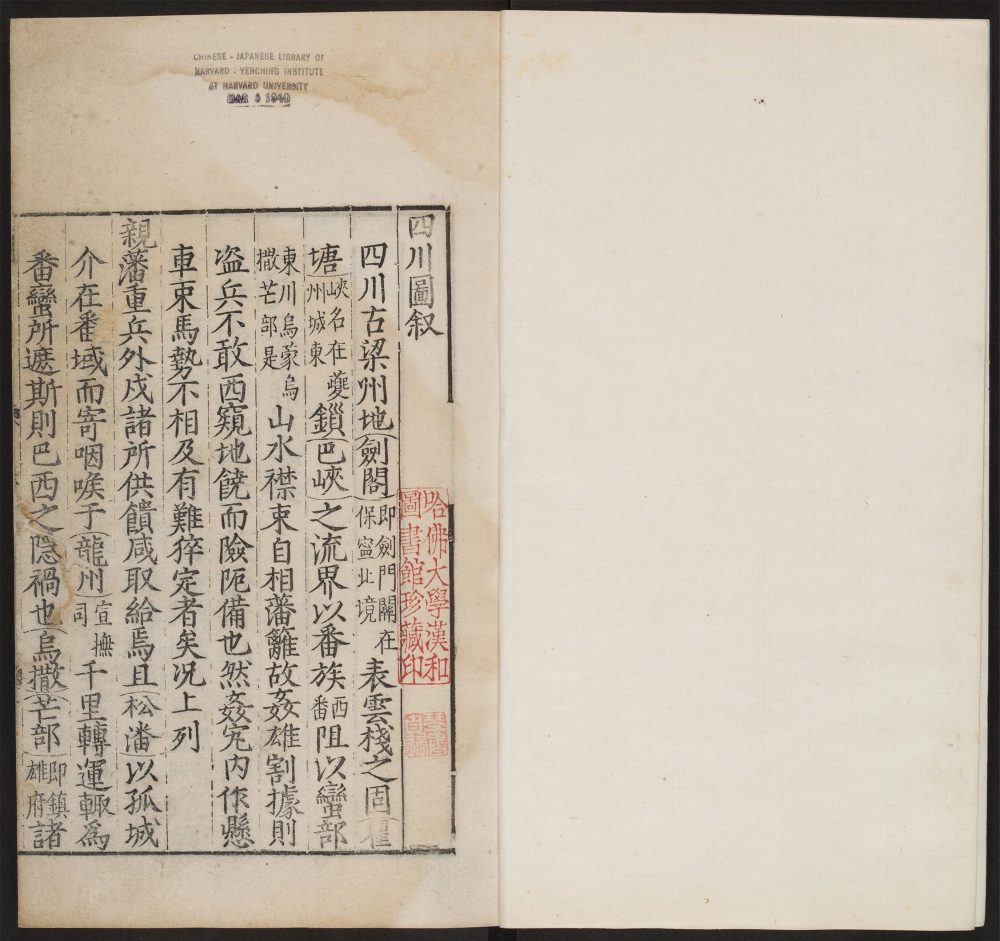 CHINESE - JAPANESE LIBRARY OF
HARVARD - YENCHING INSTITUTE
AT HARVARD UNIVERSITY
MAR 5 1940
四川圖叙
四川古梁州地劍閣即劍門關在保寧北境表雲棧之固瞿
塘峽名在夔州城東鎖巴峽之流界以番族西番阻以蠻部
東川烏蒙烏撒芒部是山水襟束自相藩籬故姦雄割據則
盗兵不敢西窺地饒而險阨備也然姦宄内作懸
車束馬勢不相及有難猝定者矣况上列
親藩重兵外戍諸所供饋咸取給焉且松潘以孤城
介在番域而寄咽喉于龍州宣撫司千里轉運輙爲
番蠻所遮斯則巴西之隠禍也烏撒芒部即鎮雄府諸
哈佛大學漢和
圖書館珍藏印